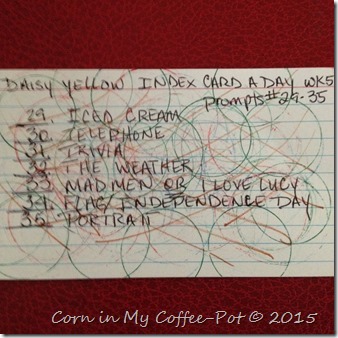 DAISY YELLOW INDEX CARD A DAY WK5
Prompts #29-35
29. ICED CREAM
30. TELEPHONE
31. TRIVIA
32. THE WEATHER
33. MAD MEN OR I LOVE LUCY
34. FLAG/INDEPENDENCE DAY
35. PORTRAIT
Corn in My Coffee-Pot © 2015